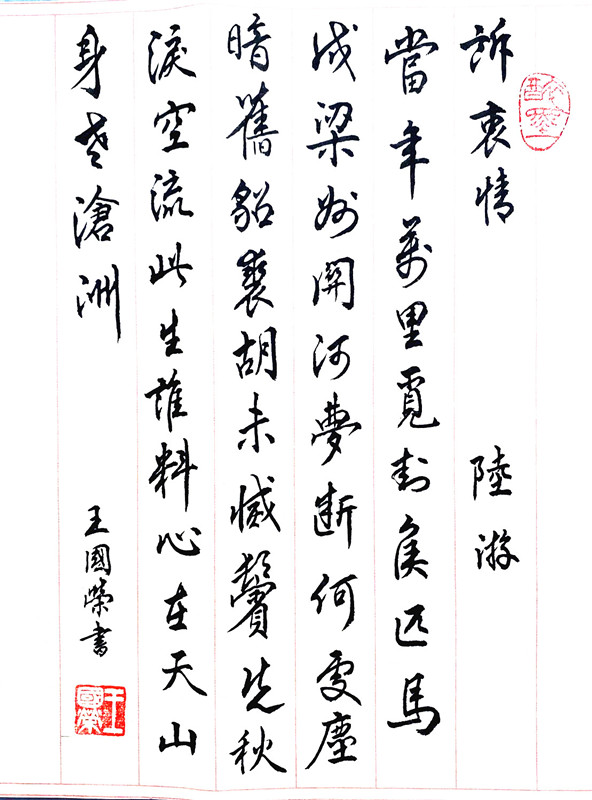 訴衷情 陸游
當年萬里覓封侯匹馬
戍梁州關河夢斷何處塵
暗舊貂裘胡未滅鬢先秋
淚空流此生誰料心在天山
身老滄洲
王國榮書
王國榮